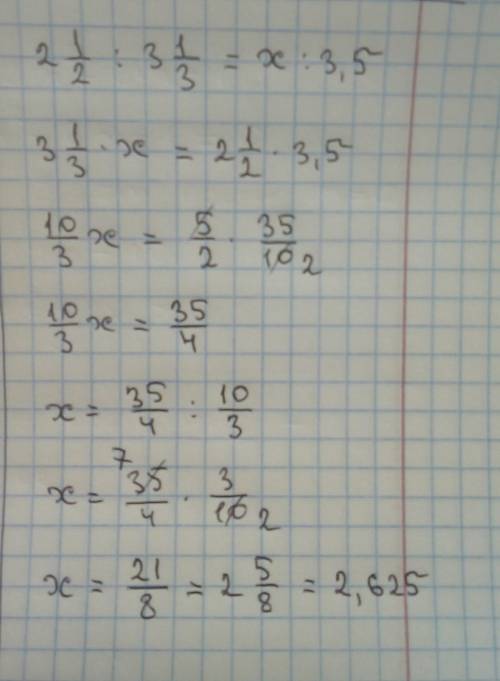 2 1/2 : 3 1/3 = x : 3,5
3 1/3 · x = 2 1/2 · 3,5
10/3 x = 5/2 · 35/10 2
10/3 x = 35/4
x = 35/4 : 10/3
x = 7 35/4 · 3/10 2
x = 21/8 = 2 5/8 = 2,625